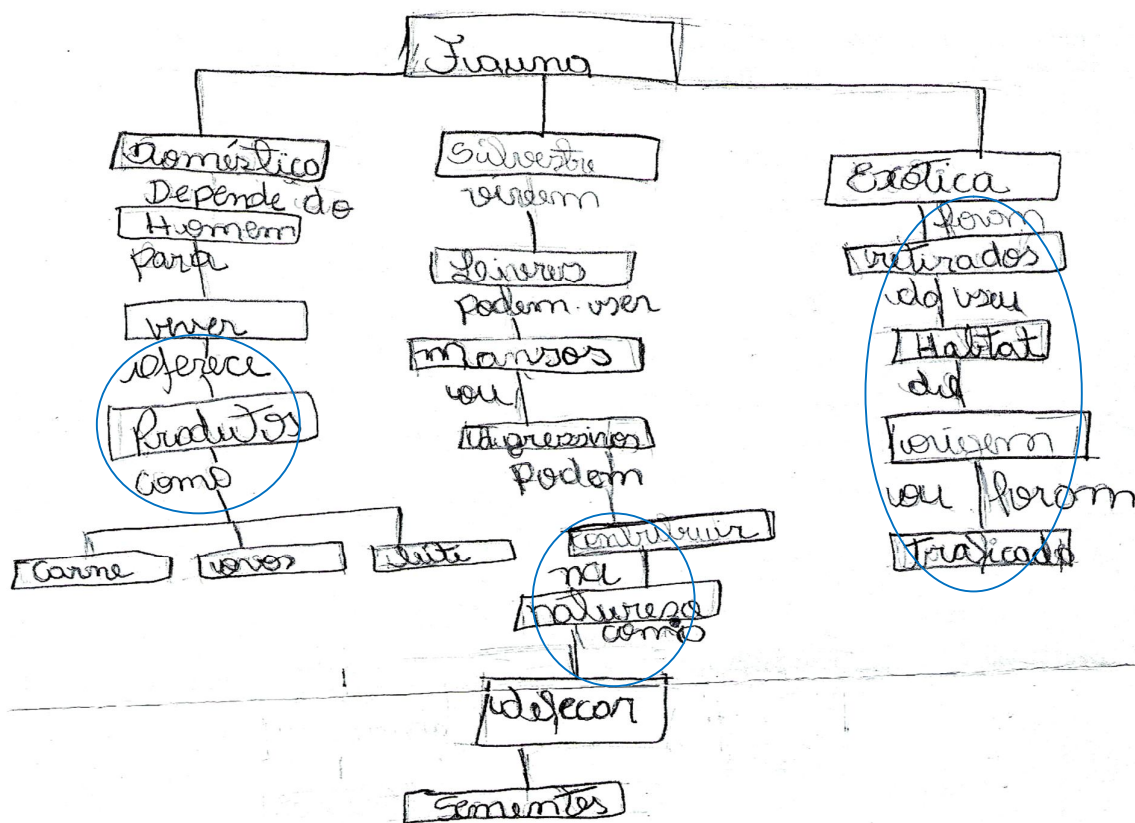 Fauna
Doméstico
Depende do
Homem
para
viver
oferece
Produtos
como
Carne
ovos
leite
Silvestre
vivem
Livres
podem ser
Mansos
ou
Agressivos
Podem
contribuir
na
natureza
como
defecar
Sementes
Exótica
foram
retirados
do seu
Habtat
de
origem
ou foram
Traficado